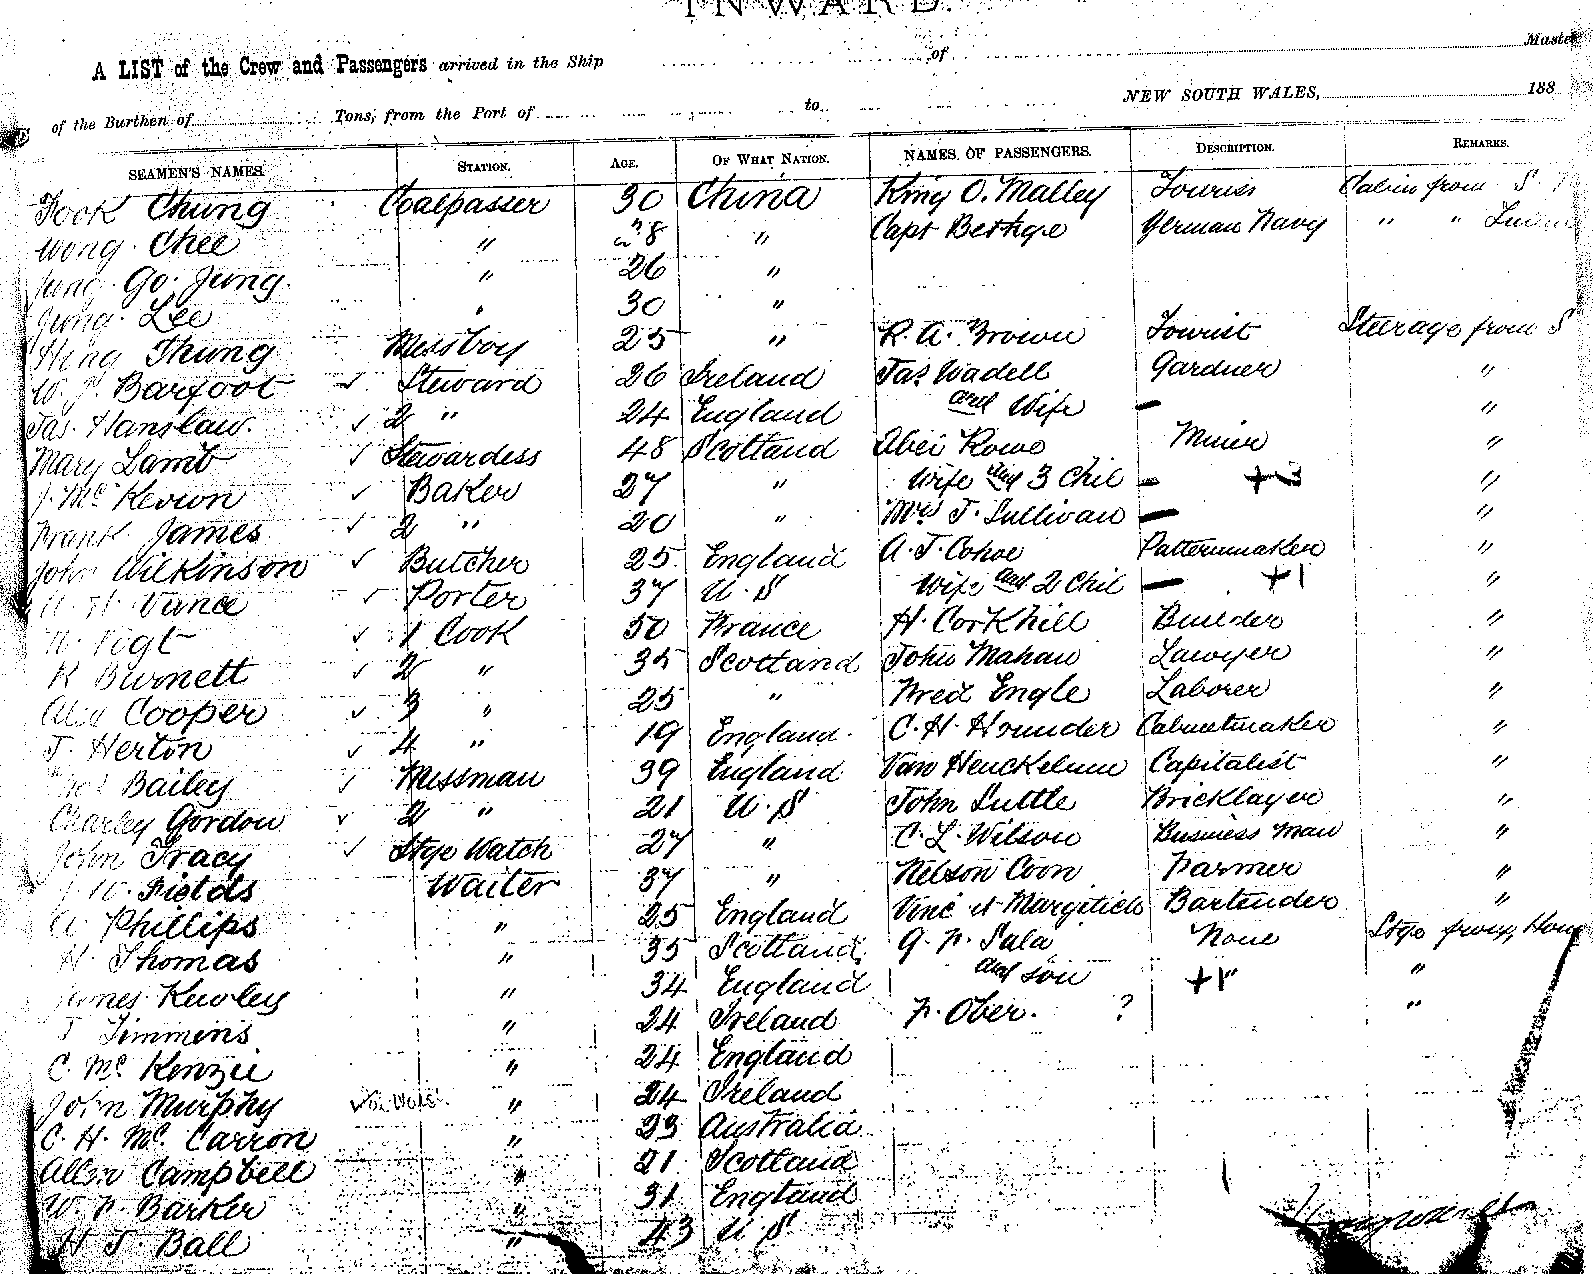 INWARD.
A LIST of the Crew and Passengers arrived in the Ship of Master
of the Burthen of Tons, from the Port of to NEW SOUTH WALES, 188
SEAMEN'S NAMES. STATION. AGE. OF WHAT NATION. NAMES OF PASSENGERS. DESCRIPTION. REMARKS.
Fook Chung Coalpasser 30 China King O. Malley Tourist Cabin from S
Wong Chee " 28 " Capt Bethge German Navy " "
Jung Go Jung " 26 "
Jung Lee " 30 "
Hing Thung Messboy 25 " R. A. Brown Tourist Steerage from S
W. J. Barfoot ✓ Steward 26 Ireland Jas Wadell Gardner "
Jas. Hanslaw. ✓ 2 " 24 England and Wife — "
Mary Lamb ✓ Stewardess 48 Scotland Abei Rowe Miner "
J. Mc Kevion ✓ Baker 27 " Wife and 3 Chil — +3 "
Frank James ✓ 2 " 20 " Mrs J. Sullivan — "
John Wilkinson ✓ Butcher 25. England A. J. Cohoe Patternmaker "
Vance ✓ Porter 37 U.S Wife and 2 Chil — +1 "
Vogt ✓ 1 Cook 50 France H. Corkhill Builder "
R Burnett ✓ 2 " 35 Scotland John Mahan Lawyer "
Cooper ✓ 3 " 25 " Fred Engle Laborer "
T. Herton ✓ 4 " 19 England. C. H. Hounder Cabinetmaker "
Bailey ✓ Messman 39 England Van Henckelum Capitalist "
Charley Gordon ✓ 2 " 21 U.S John Suttle Bricklayer "
John Tracy ✓ Stge Watch 27 " C. L. Wilson Business Man "
J. W. Fields Waiter 37 " Nelson Coon Farmer "
A Phillips " 25 England Bartender "
H. Thomas " 35 Scotland. G. F. Sala None Stge from
James Kewley " 34 England and son +1 "
T Timmins " 24 Ireland F. Ober. ? "
C. Mc Kenzie " 24 England
John Murphy " 24 Ireland
C. H. Mc Carron " 23 Australia
Allen Campbell " 21 Scotland
W. F. Barker " 31 England
H J Ball " 43 U.S